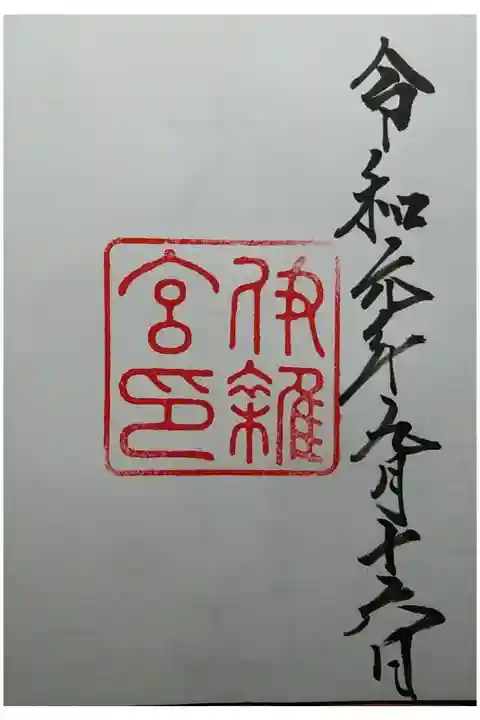 令和元年九月十六日
伊雜
宮印